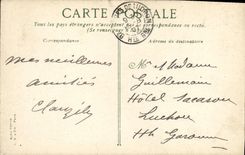 CARTE POSTALE
Tous les pays étrangers n'acceptent pas la correspondance au recto.
(Se renseigner à la poste)
Correspondance
Adresse du destinataire
Mes meilleures
amitiés
Mr et Madame
Guillemain
Hôtel
Luchon
Hte Garonne